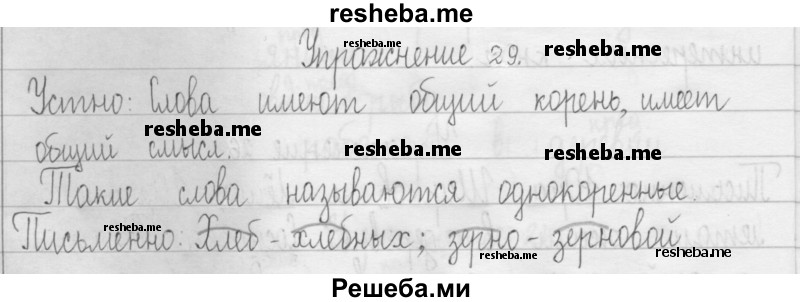 resheba.me
Упражнение 29.
resheba.me
resheba.me
Устно: Слова имеют общий корень, имеет
resheba.me
resheba.me
resheba.me
общий смысл.
resheba.me
resheba.me
Такие слова называются однокоренные.
resheba.me
Письменно: Хлеб - хлебных; зерно - зерновой.
resheba.me
resheba.me
Решеба.ми